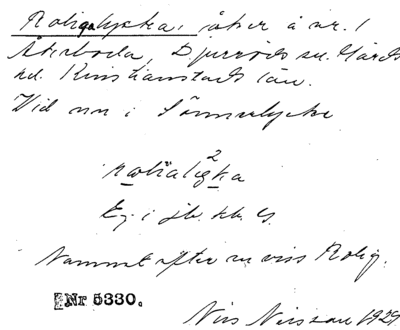 Roligalycka, åker å nr. 1
Åkerboda, Djurröds sn. Gärds
hd. Kristianstads län.
Vid nn i Sönnerlycke
2
Ej i jb. kb. G.
Namnet efter en viss Rolig.
Nr 5330.
Nils Nilsson 1929